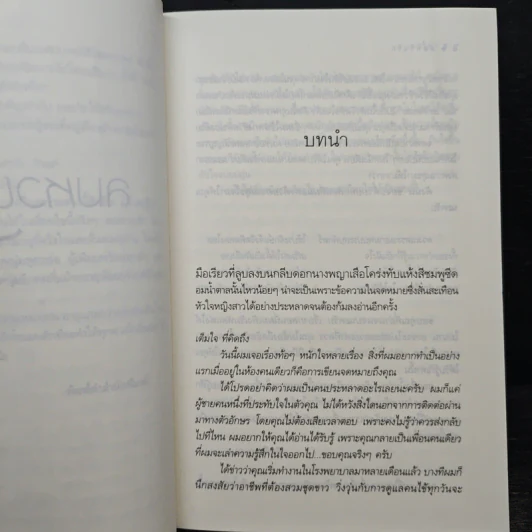 บทนำ
มือเรียวที่ลูบลงบนกลีบดอกนางพญาเสือโคร่งทับแห้งสีชมพูซีด
อมน้ำตาลนั้นไหวน้อยๆ น่าจะเป็นเพราะข้อความในจดหมายซึ่งสั่นสะเทือน
หัวใจหญิงสาวได้อย่างประหลาดจนต้องก้มลงอ่านอีกครั้ง
เต็มใจ ที่คิดถึง
วันนี้ผมเจอเรื่องท้อๆ หนักใจหลายเรื่อง สิ่งที่ผมอยากทำเป็นอย่าง
แรกเมื่ออยู่ในห้องคนเดียวก็คือการเขียนจดหมายถึงคุณ
ได้โปรดอย่าคิดว่าผมเป็นคนประหลาดอะไรเลยนะครับ ผมก็แค่
ผู้ชายคนหนึ่งที่ประทับใจในตัวคุณ ไม่ได้หวังสิ่งใดนอกจากการติดต่อผ่าน
มาทางตัวอักษร โดยคุณไม่ต้องเสียเวลาตอบ เพราะคงไม่รู้ว่าควรส่งกลับ
ไปที่ไหน ผมอยากให้คุณได้อ่านได้รับรู้ เพราะคุณกลายเป็นเพื่อนคนเดียว
ที่ผมจะเล่าความรู้สึกในใจออกไป...ขอบคุณจริงๆ ครับ
ได้ข่าวว่าคุณเริ่มทำงานในโรงพยาบาลมาหลายเดือนแล้ว บางทีผมก็
นึกสงสัยว่าอาชีพที่ต้องสวมชุดขาว วิ่งวุ่นกับการดูแลคนไข้ทุกวันจะ